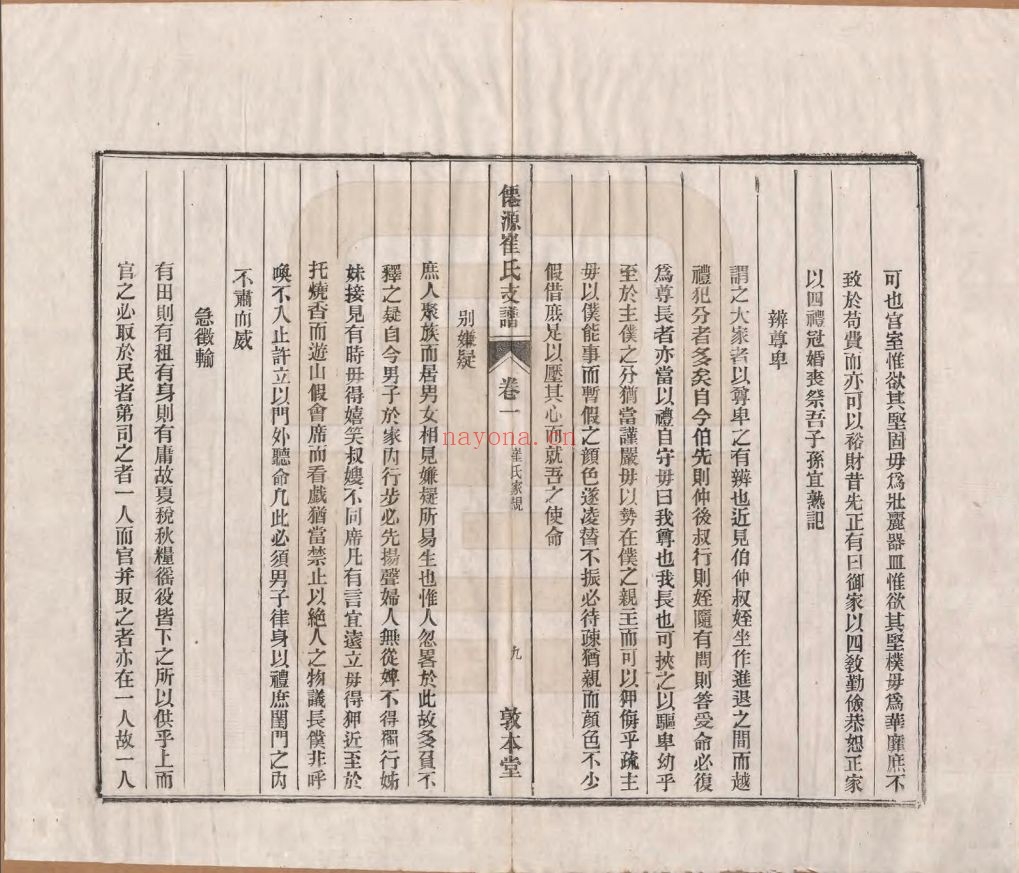 可也宮室惟欲其堅固毋爲壯麗器皿惟欲其堅樸毋爲華靡庶不
致於苟費而亦可以裕財昔先正有曰御家以四敎勤儉恭恕正家
以四禮冠婚喪祭吾子孫宜熟記
辨尊卑
謂之大家者以尊卑之有辨也近見伯仲叔姪坐作進退之間而越
禮犯分者多矣自今伯先則仲後叔行則姪隨有問則答受命必復
爲尊長者亦當以禮自守毋曰我尊也我長也可挾之以驅卑幼乎
至於主僕之分猶當謹嚴毋以勢在僕之親主而可以狎侮乎疏主
毋以僕能事而暫假之顏色遂凌替不振必待疎猶親而顏色不少
假借庶足以壓其心而就吾之使命
僊源崔氏支譜
卷一
崔氏家規
九
敦本堂
別嫌疑
庶人聚族而居男女相見嫌疑所易生也惟人忽畧於此故多貧不
釋之疑自今男子於家內行步必先揚聲婦人無從婢不得獨行姊
妹接見有時毋得嬉笑叔嫂不同席凡有言宜遠立毋得狎近至於
托燒香而遊山假會席而看戲猶當禁止以絕人之物議長僕非呼
喚不入止許立以門外聽命凡此必須男子律身以禮庶閨門之內
不肅而威
急徵輸
有田則有租有身則有庸故夏稅秋糧徭役皆下之所以供乎上而
官之必取於民者第司之者一人而官并取之者亦在一人故一人
nayona.cn